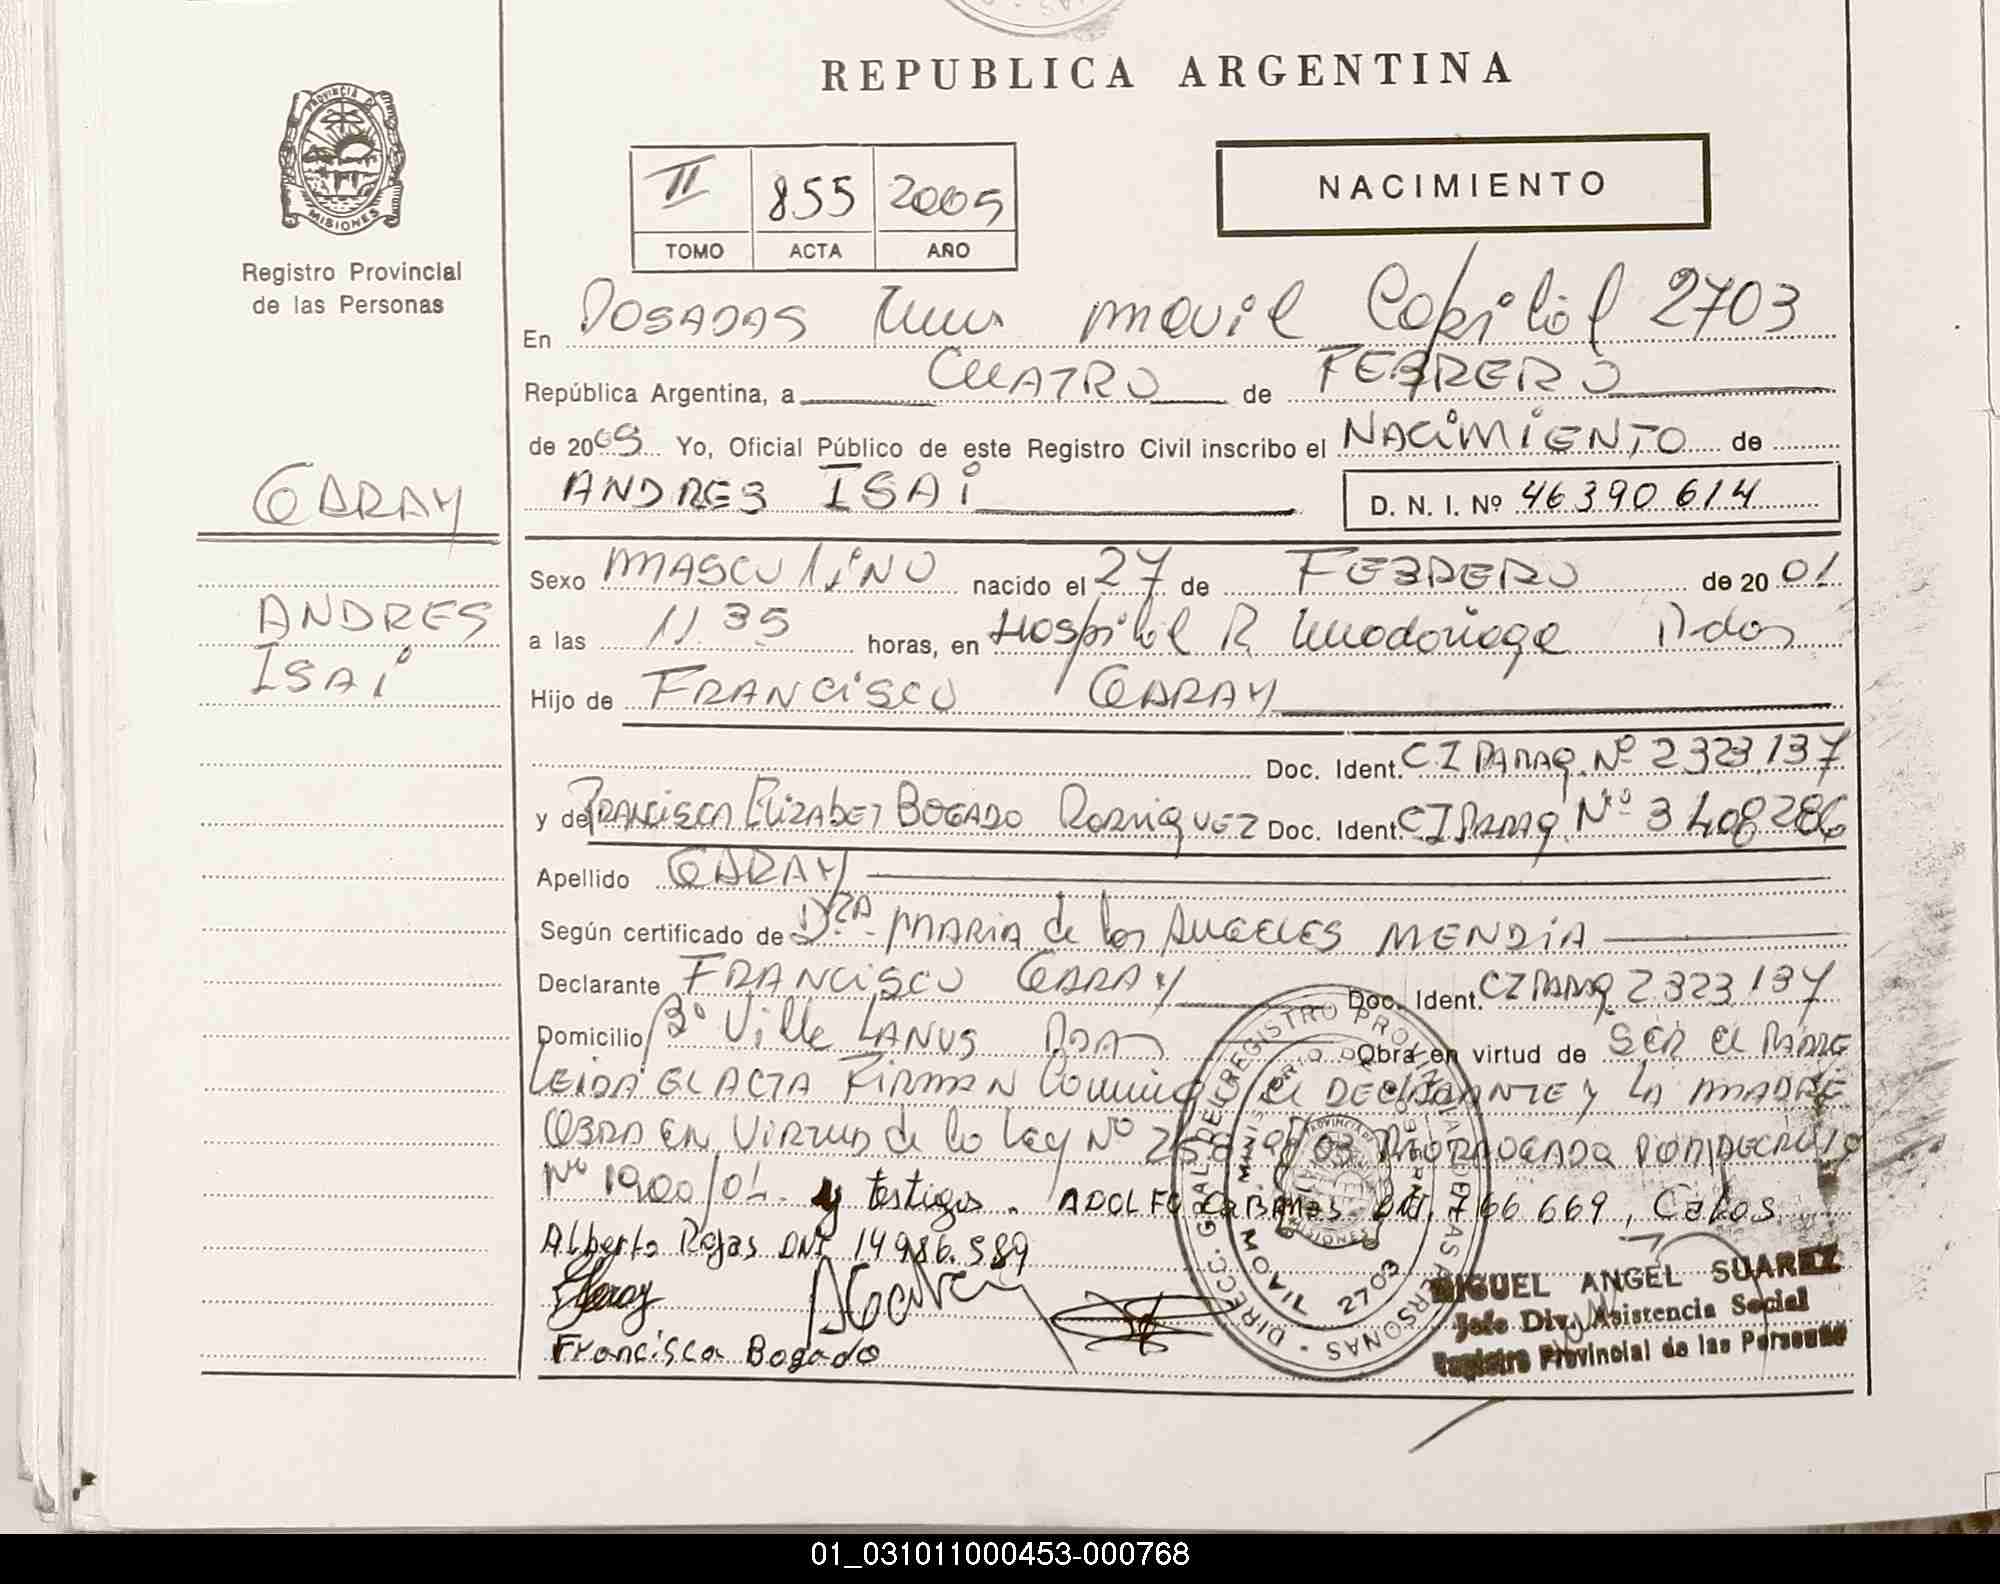 REPUBLICA ARGENTINA
PROVINCIA DE
MISIONES
Registro Provincial
de las Personas
II 855 2005
TOMO ACTA AÑO
NACIMIENTO
En POSADAS movil Capital 2703
República Argentina, a CUATRO de FEBRERO
de 2005 Yo, Oficial Público de este Registro Civil inscribo el NACIMIENTO de
ANDRES ISAI D. N. I. Nº 46390614
GARAY
ANDRES
ISAI
Sexo MASCULINO nacido el 27 de FEBRERO de 20 01
a las 11 35 horas, en Hospital R Madariaga Pdas
Hijo de FRANCISCO GARAY
Doc. Ident. CI PARAG. Nº 2323137
y de FRANCISCA ELIZABET BOGADO RODRIGUEZ Doc. Ident. CI PARAG Nº 3408286
Apellido GARAY
Según certificado de DRA. MARIA de los ANGELES MENDIA
Declarante FRANCISCO GARAY Doc. Ident. CI PARAG 2323137
Domicilio Bº Villa LANUS Obra en virtud de SER EL PADRE
LEIDA EL ACTA FIRMAN Conmigo El DECLARANTE y LA MADRE
OBRA EN VIRTUD de la Ley Nº PRORROGADA POR DECRETO
Nº 1900/04. y testigos. ADOLFO CABAÑAS 766 669, Carlos
Alberto Rojas DNI 14986.589
Francisca Bogado
DIRECC. GRAL DEL REGISTRO PROVINCIAL DE LAS PERSONAS
MOVIL 2703
MIGUEL ANGEL SUAREZ
Jefe Div. Asistencia Social
Registro Provincial de las Personas
01_031011000453-000768